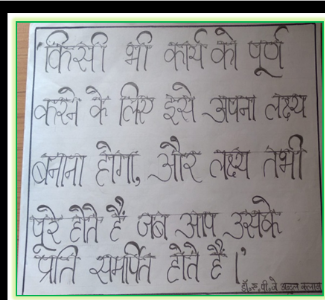 'किसी भी कार्य को पूर्ण
करने के लिए इसे अपना लक्ष्य
बनाना होगा, और लक्ष्य तभी
पूरे होते हैं जब आप उसके
प्रति समर्पित होते हैं।'
डॉ. ए. पी. जे अब्दुल कलाम